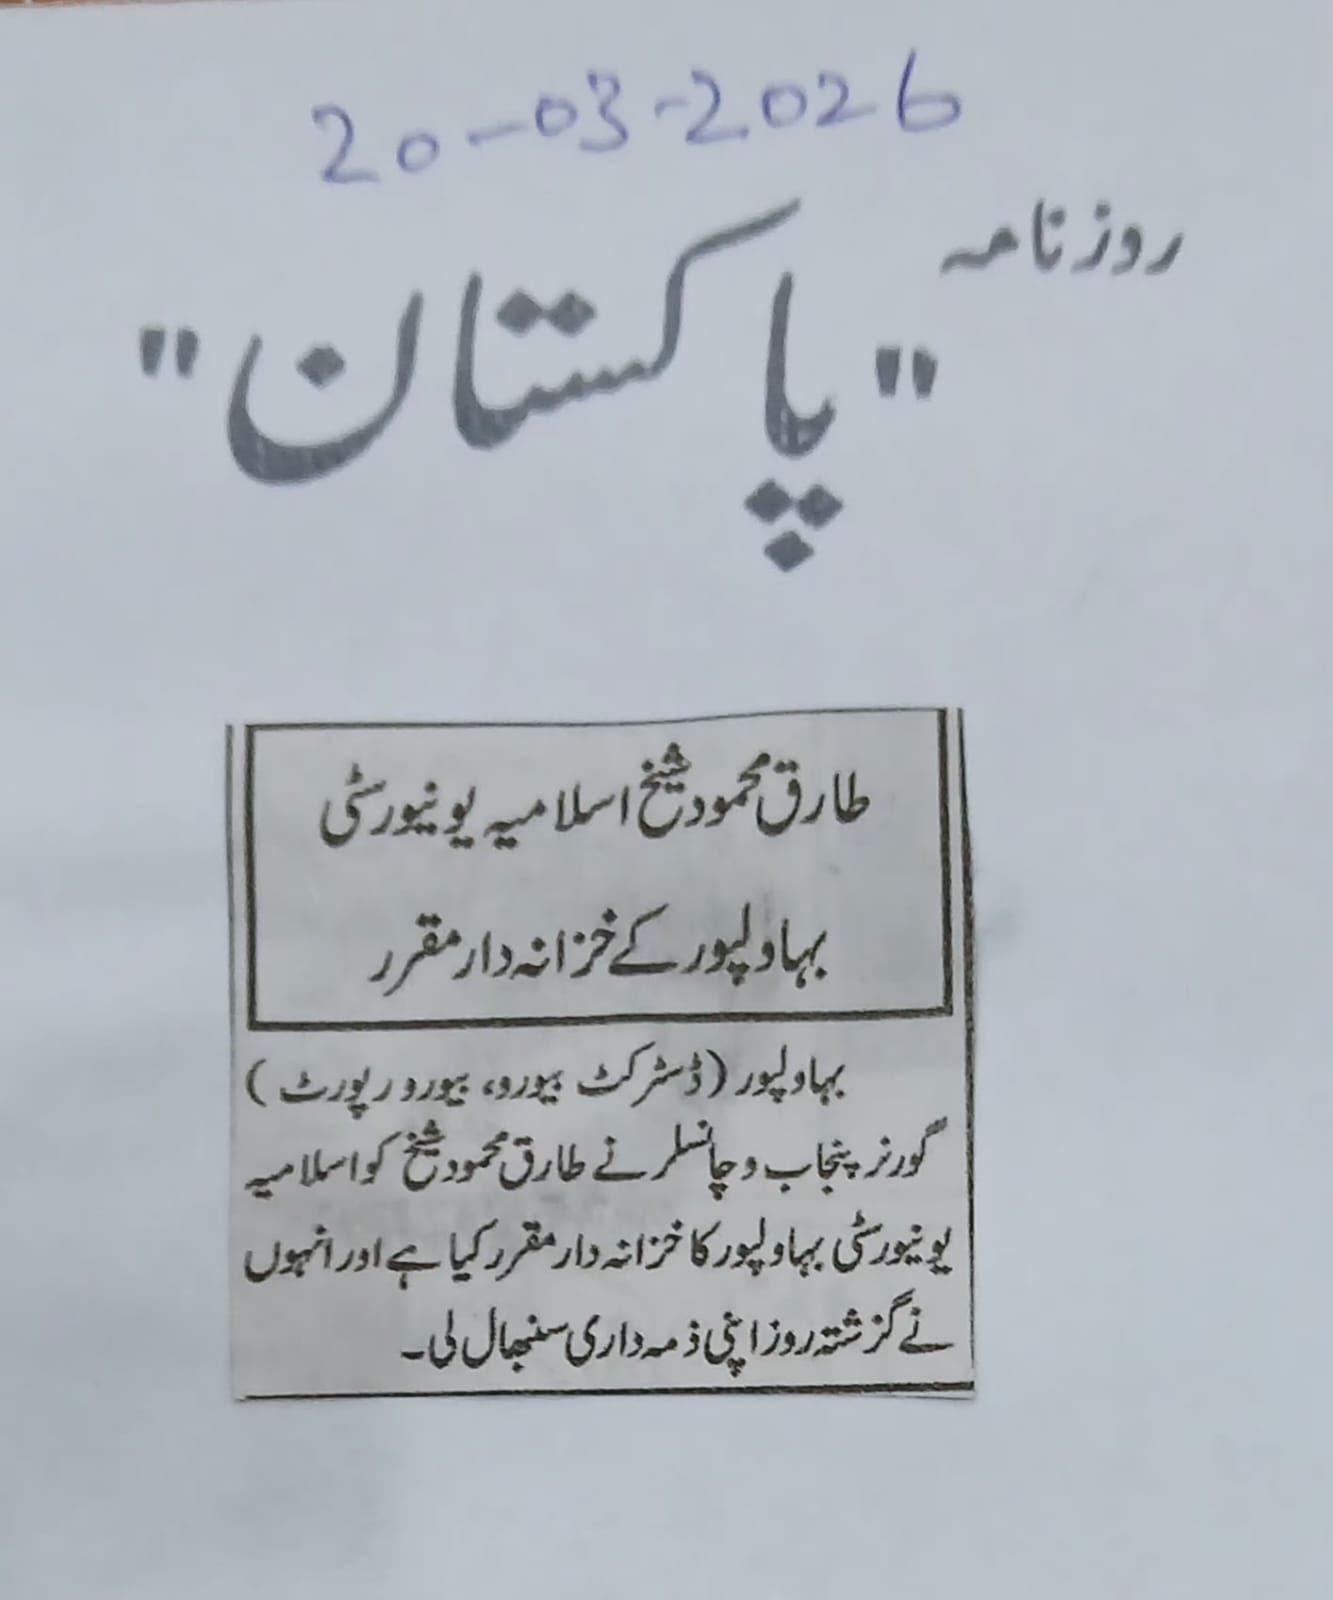 20-03-2026
روزنامہ
"پاکستان"
طارق محمود شیخ اسلامیہ یونیورسٹی
بہاولپور کے خزانہ دار مقرر
بہاولپور (ڈسٹرکٹ بیورو، بیورو رپورٹ)
گورنر پنجاب و چانسلر نے طارق محمود شیخ کو اسلامیہ
یونیورسٹی بہاولپور کا خزانہ دار مقرر کیا ہے اور انہوں
نے گزشتہ روز اپنی ذمہ داری سنبھال لی۔